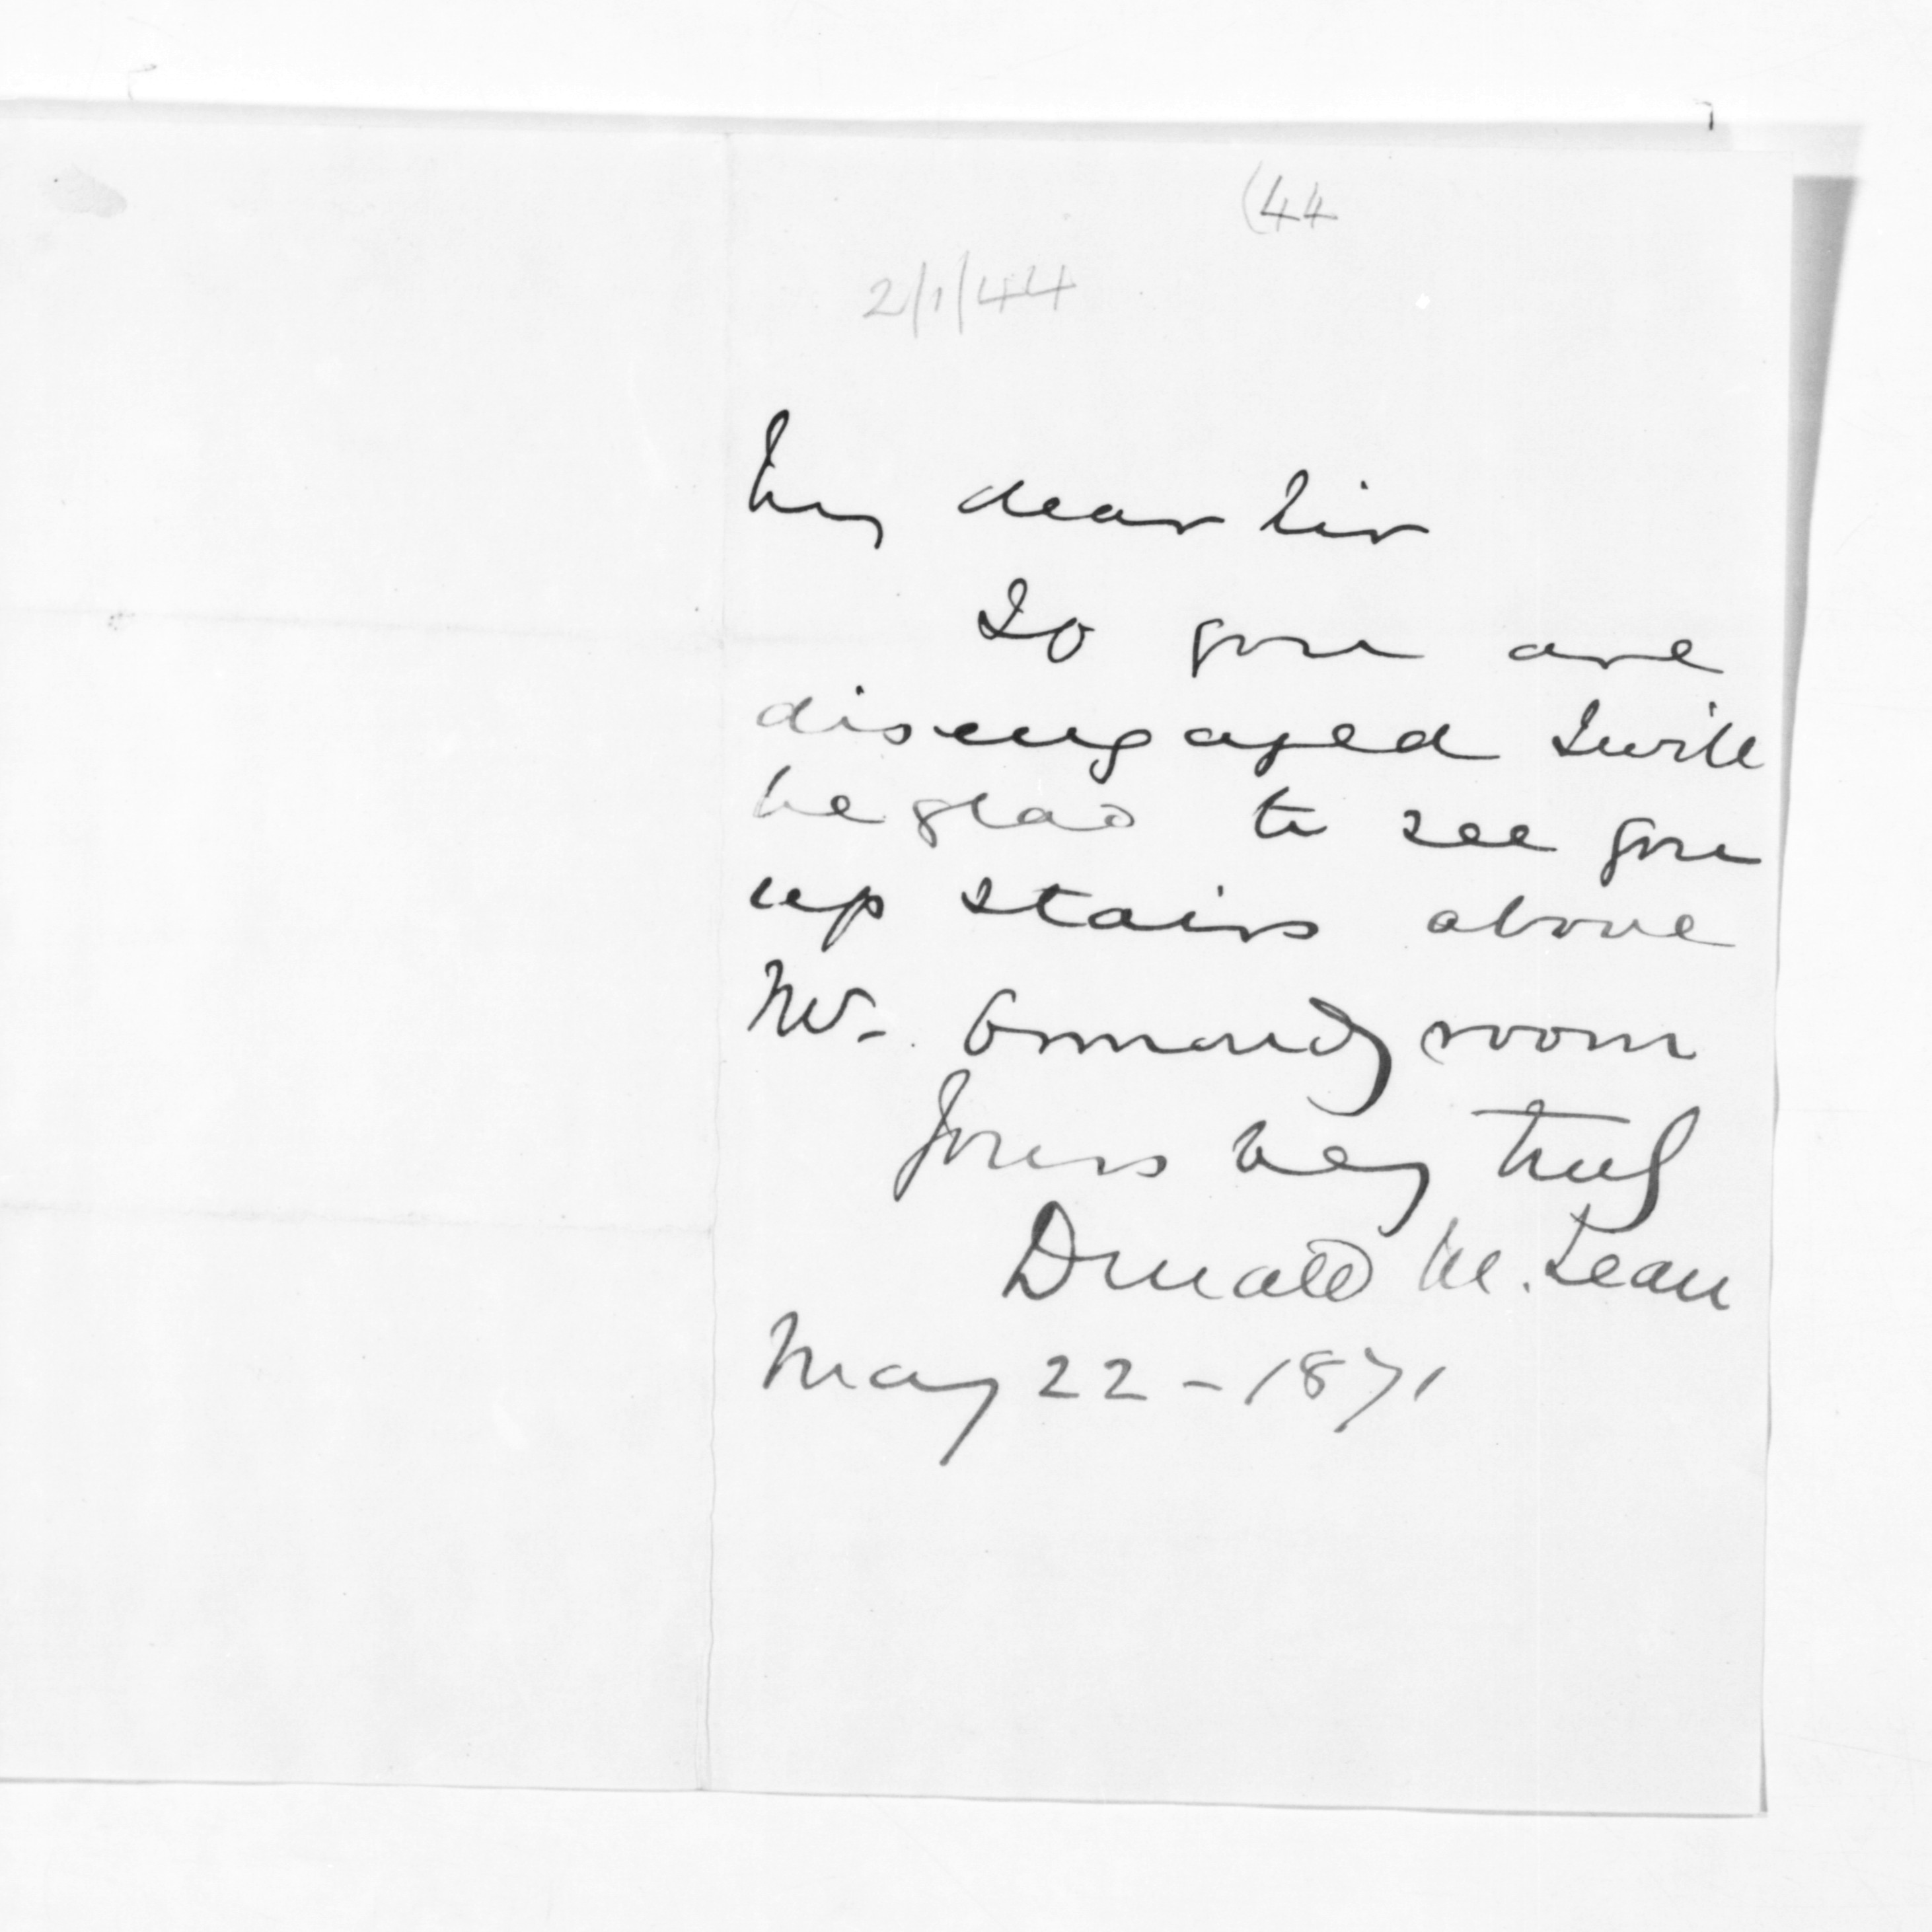 (44
2/1/44
My dear Sir
If you are
disengaged I will
be glad to see you
up stairs above
Mr. Ormonds room
Yours very truly
Donald McLean
May 22 - 1871